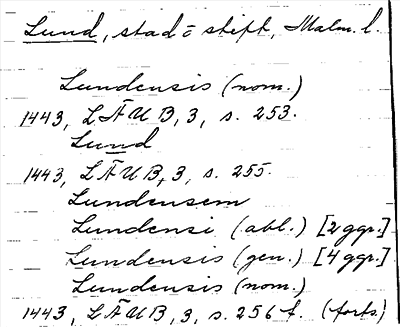 Lund, stad o stift, Malm. l.
Lundensis (nom.)
1443, LÄUB, 3, s. 253.
Lund
1443, LÄUB, 3, s. 255.
Lundensem
Lundensi (abl.) [2 ggr.]
Lundensis (gen.) [4 ggr.]
Lundensis (nom.)
1443, LÄUB, 3, s. 256 f. (forts.)